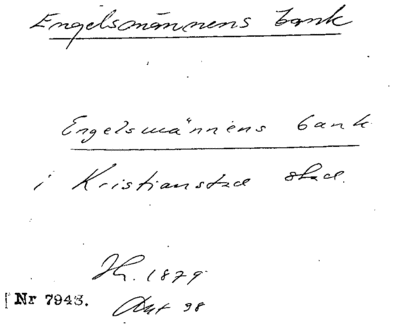 Engelsmännens bank
Engelsmännens bank
i Kristianstad stad.
H. 1879
Nr 7943.
98